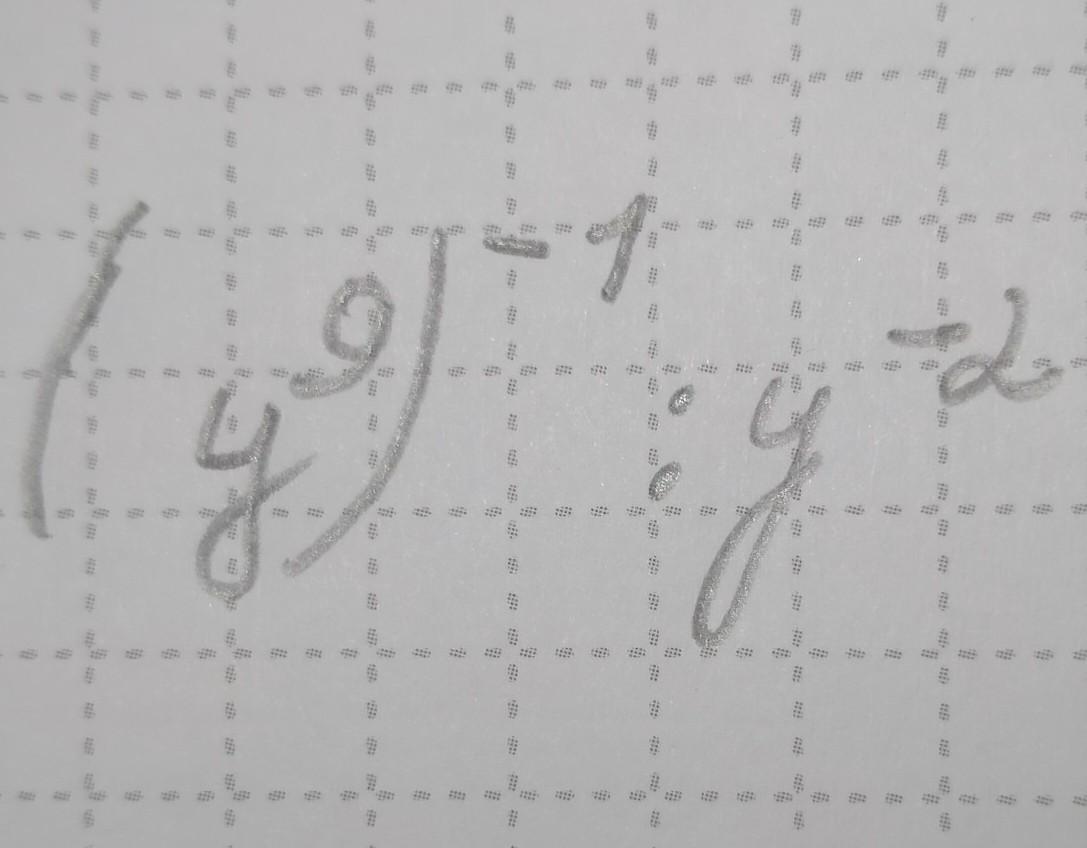 (y⁹)⁻¹ : y⁻²